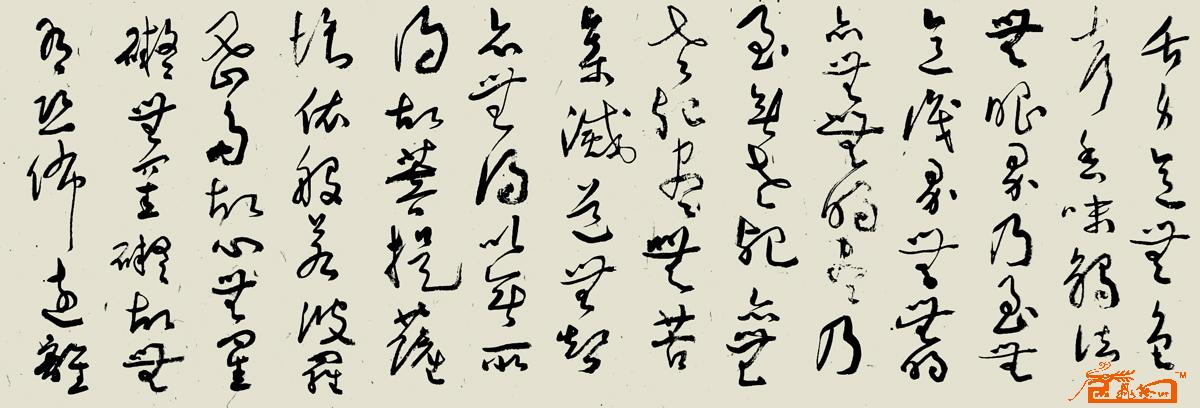 舌身意無色
声香味觸法
無眼界乃至無
意識界無無明
亦無無明盡乃
至無老死亦無
老死盡無苦
集滅道無智
亦無得以無所
得故菩提薩
埵依般若波羅
蜜多故心無罣
礙無罣礙故無
有恐怖遠離